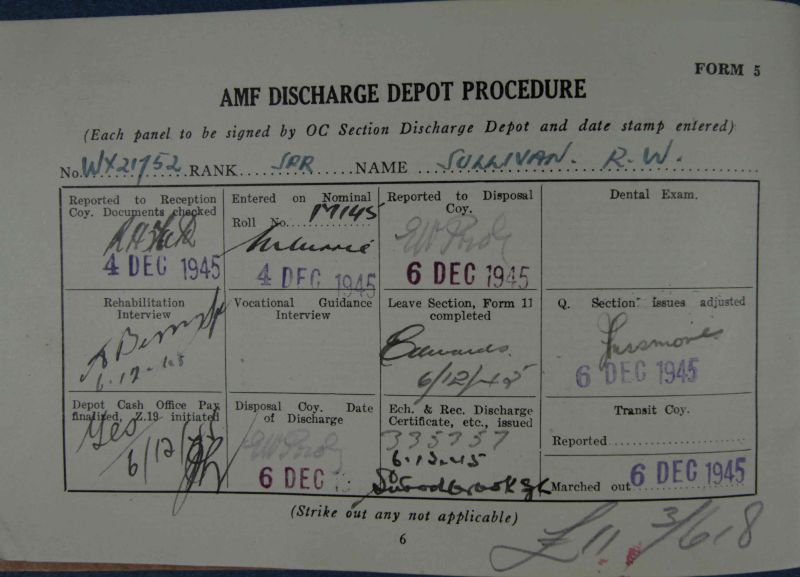 FORM 5
AMF DISCHARGE DEPOT PROCEDURE
(Each panel to be signed by OC Section Discharge Depot and date stamp entered)
No. WX21752 RANK SPR NAME SULLIVAN. R.W.
Reported to Reception Coy. Documents checked
4 DEC 1945
Entered on Nominal Roll No. M145
4 DEC 1945
Reported to Disposal Coy.
6 DEC 1945
Dental Exam.
Rehabilitation Interview
6.12.45
Vocational Guidance Interview
Leave Section, Form 11 completed
Edwards.
6/12/45
Q. Section issues adjusted
6 DEC 1945
Depot Cash Office Pay finalised, Z.19 initiated
6/12/45
Disposal Coy. Date of Discharge
6 DEC
Ech. & Rec. Discharge Certificate, etc., issued
335757
6.12.45
Transit Coy.
Reported
Marched out 6 DEC 1945
(Strike out any not applicable)
6
£11 3/618